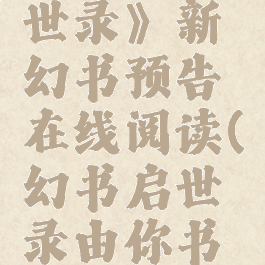 世录》新
幻书预告
在线阅读(
幻书启世
录由你书